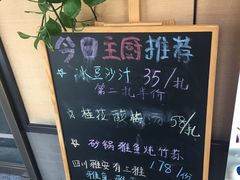 今日主厨推荐
☆ 冰豆沙汁 35/扎
第二扎半价
☆ 桂花酸梅汤 58/扎
☆ 砂锅雅鱼炖竹荪
四川雅安有上雅 178/份